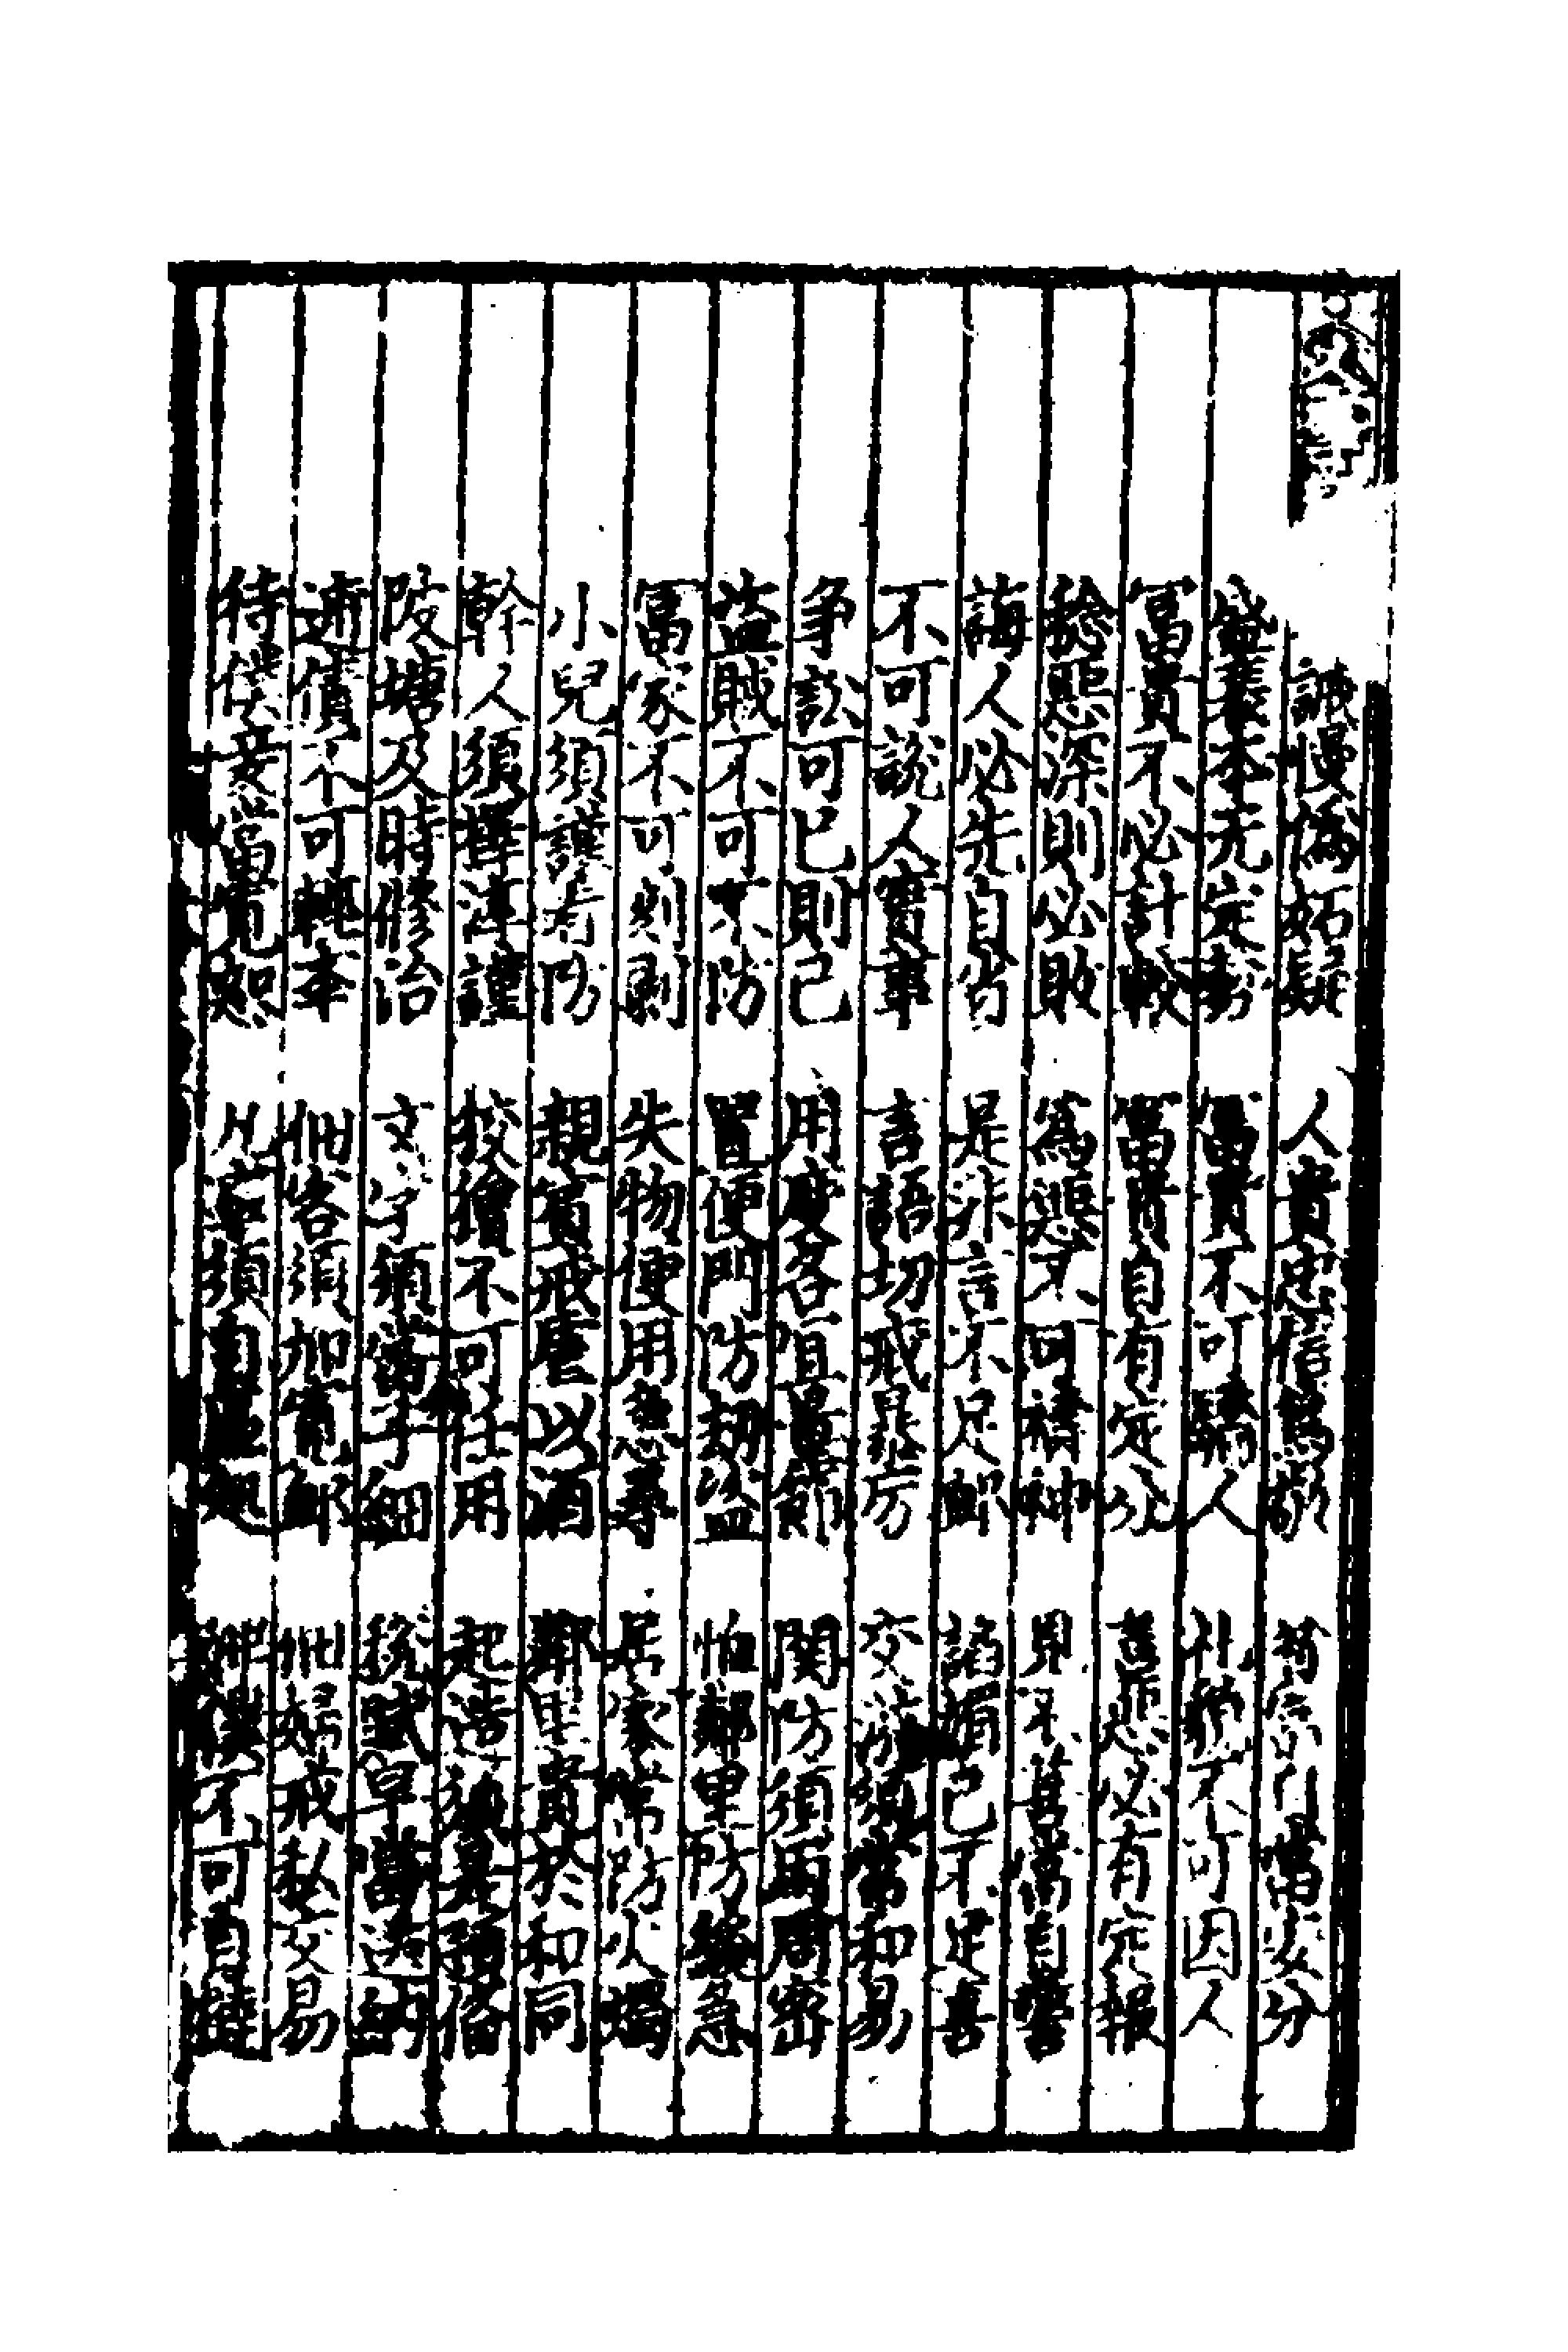 誡慢偽妬疑　人貴忠信篤敬　茍宗行當安分
盛衰本无定勢　富貴不可驕人　礼貌不可因人
冨貴不必計較　富貴自有定分　善惡必有定報
稔惡深則必敗　為惡不可禱神　見不善當自警
誨人必先自省　是非言不足卹　諂媚己不足喜
不可說人實事　言語切戒暴厉　交游須當和易
争訟可已則已　用度各宜量節　関防須用周密
盜賊不可不防　置便門防劫盜　怕鄰里防緩急
冨家不可刻剥　失物便用急尋　居家常防火燭
小兒須謹看防　親賓戒虐以酒　鄰里貴於和同
幹人須擇淳謹　狡獪不可任用　起造須是預俻
陂塘及時修治　文字須當子細　税賦早當送納
逋債不可輒本　佃客須加寬卹　佃婦戒私交易
待僕妾當寬恕　凢事須自區処　婢僕不可自撻